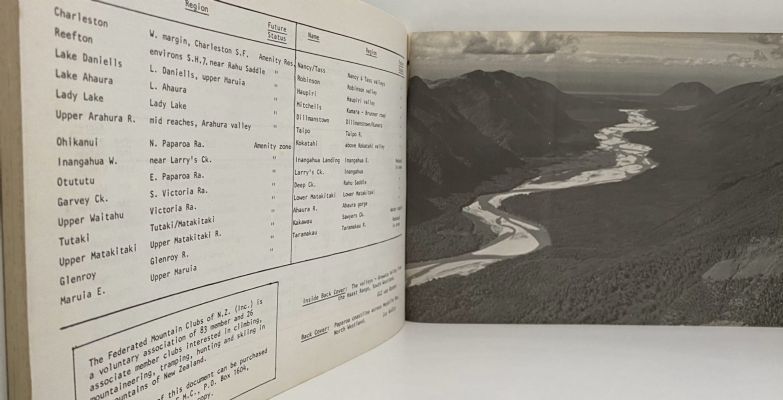 Region Future Status
Charleston W. margin, Charleston S.F. Amenity Res.
Reefton environs S.H.7, near Rahu Saddle "
Lake Daniells L. Daniells, upper Maruia "
Lake Ahaura L. Ahaura "
Lady Lake Lady Lake "
Upper Arahura R. mid reaches, Arahura valley "
Ohikanui N. Paparoa Ra. Amenity zone
Inangahua W. near Larry's Ck. "
Otututu E. Paparoa Ra. "
Garvey Ck. S. Victoria Ra. "
Upper Waitahu Victoria Ra. "
Tutaki Tutaki/Matakitaki "
Upper Matakitaki Upper Matakitaki R. "
Glenroy Glenroy R. "
Maruia E. Upper Maruia "
Name Region
Nancy/Tass Nancy & Tass valleys
Robinson Robinson valley
Haupiri Haupiri valley
Mitchells Kumara - Brunner road
Dillmanstown Dillmanstown/Kumara
Taipo Taipo R.
Kokatahi above Kokatahi valley
Inangahua Landing Inangahua R.
Larry's Ck. Inangahua
Deep Ck. Rahu Saddle
Lower Matakitaki Lower Matakitaki
Ahaura R. Ahaura gorge
Kakawau Sawyers Ck.
Taramakau Taramakau R.
The Federated Mountain Clubs of N.Z. (Inc.) is
a voluntary association of 83 member and 26
associate member clubs interested in climbing,
mountaineering, tramping, hunting and skiing in
mountains of New Zealand.
of this document can be purchased
F.M.C., P.O. Box 1604,
copy.
Inside Back Cover: The valleys -
the Haast Range, South Westland.
Back Cover: Paparoa coastline across
North Westland.